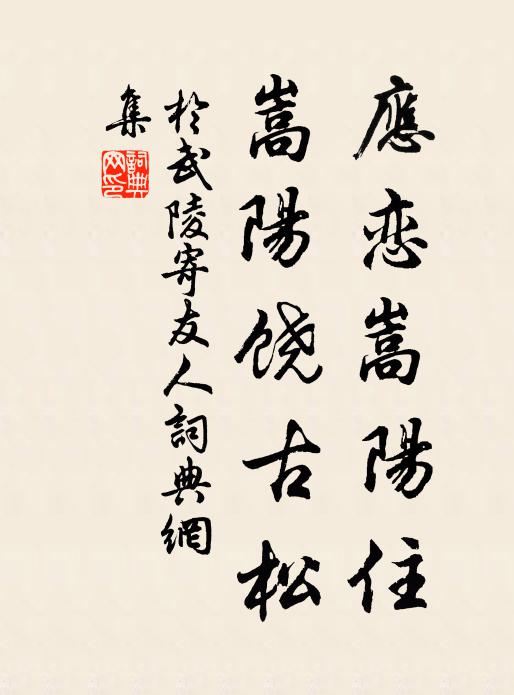 應恋嵩陽住
嵩陽饶古松
於武陵寄友人詞典網
集
詞典
网印